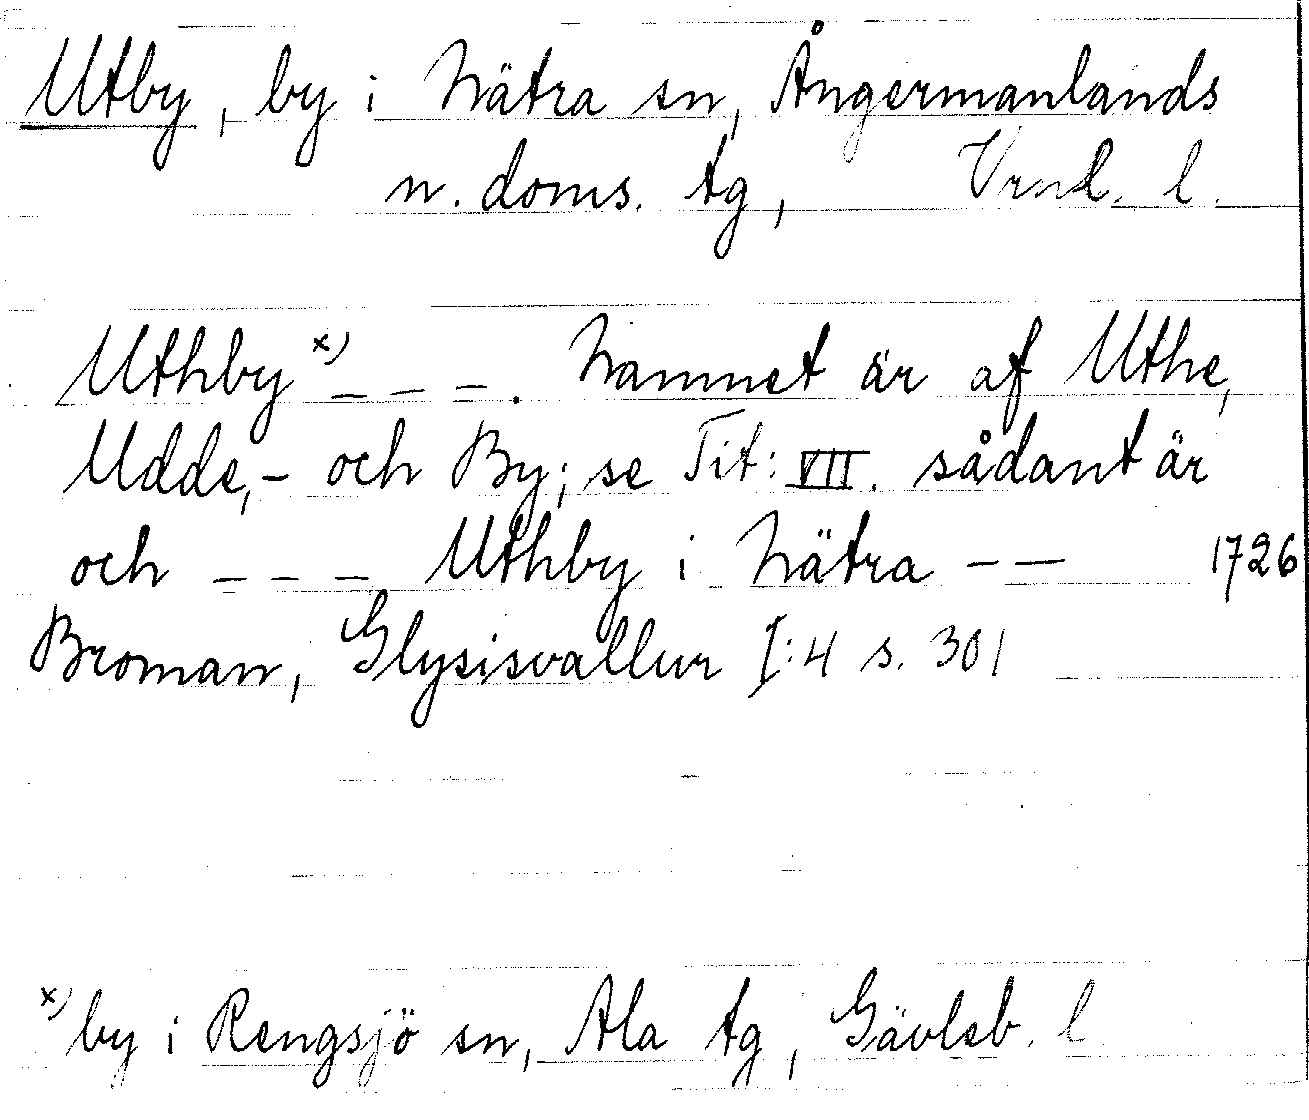 Utby, by i Nätra sn, Ångermanlands
n. doms. tg, Vrnl. l.
Uthby x) _ _ _. Namnet är af Uthe,
Udde,- och By; se Tit: VII. sådant är
och _ _ _ Uthby i Nätra — — 1726
Broman, Glysisvallur I:4 s. 301
x) by i Rengsjö sn, Ala tg, Gävleb. l